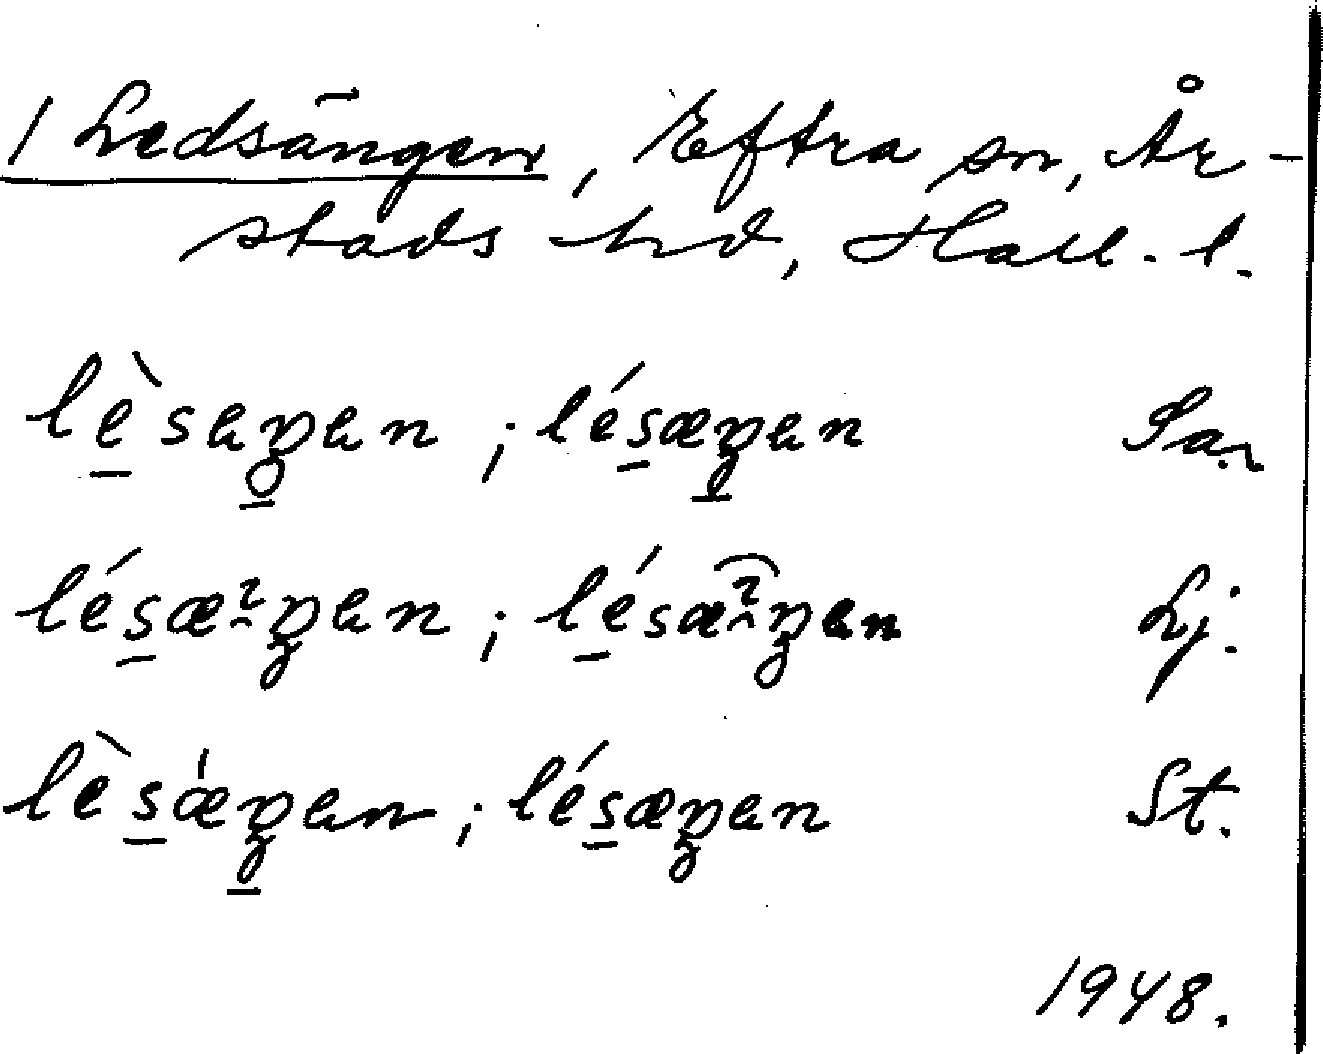 1 Ledsängen, Eftra sn, År-
stads hd, Hall. l.
lèseŋen ; lésæŋen Sa.
lésæŋen ; lésæŋen Lj.
lèsæŋen ; lésæŋen St.
1948.